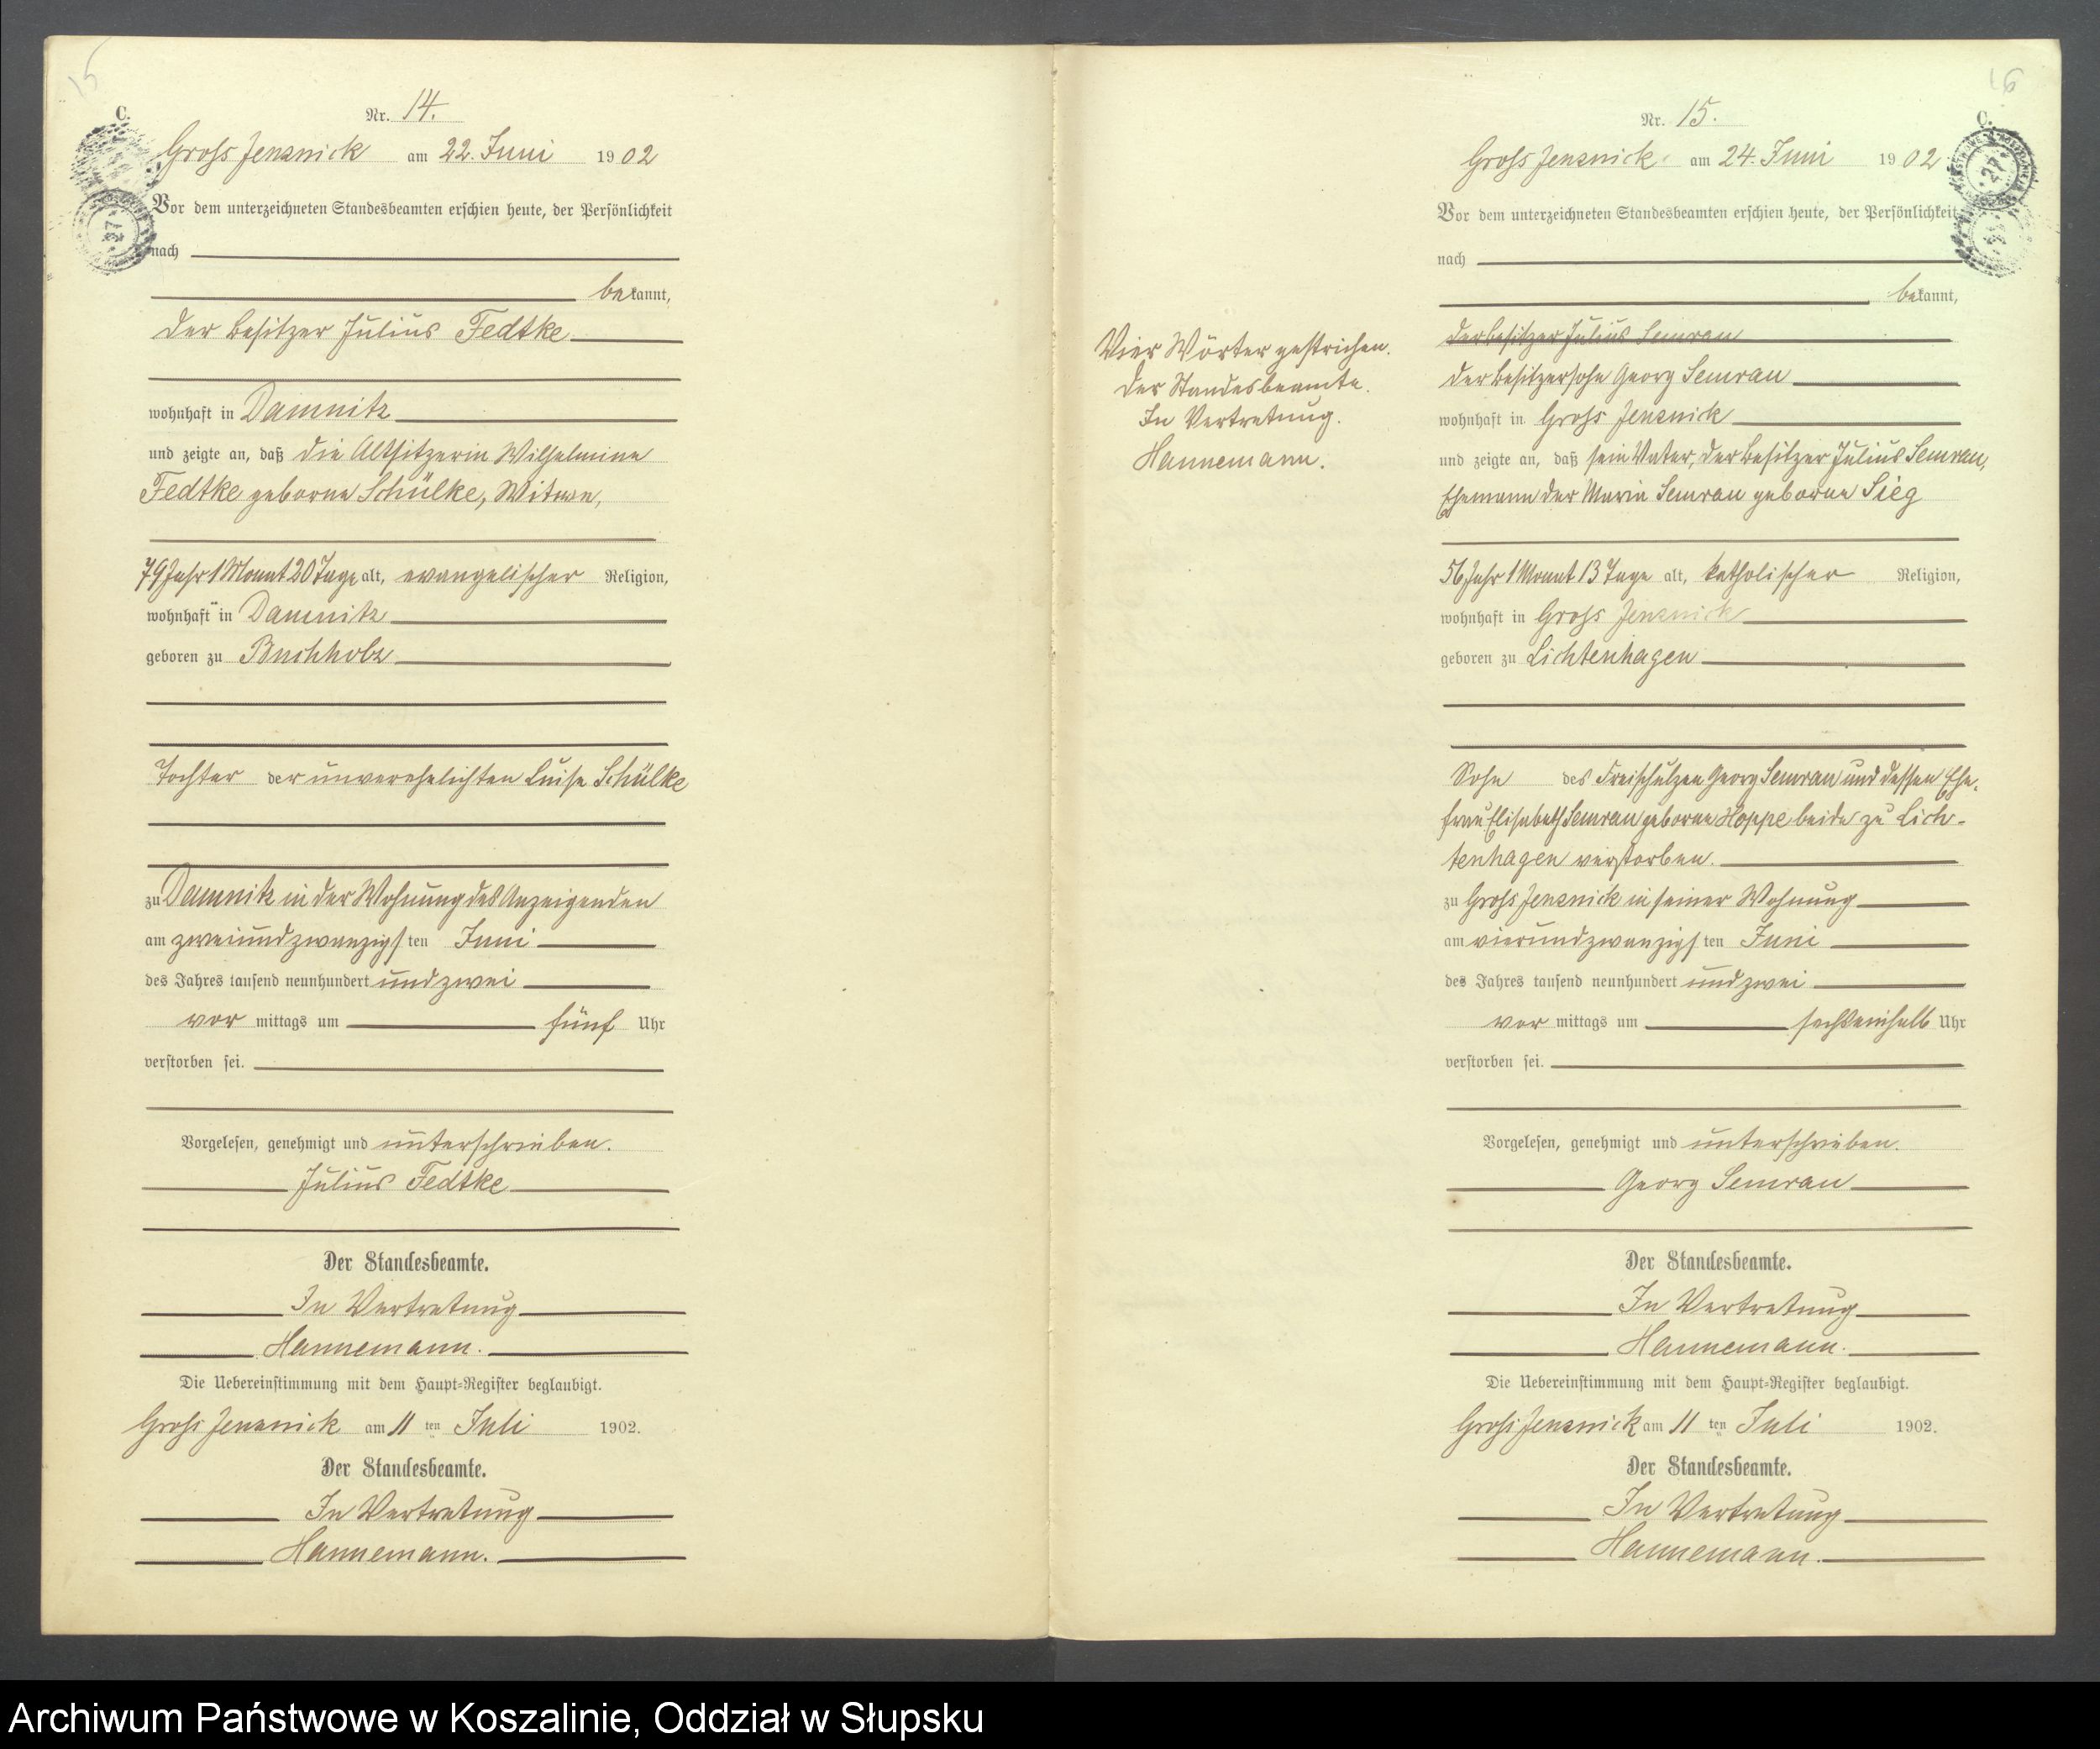 15
C.
Nr. 14.
Gross Jenznick am 22. Juni 1902
Vor dem unterzeichneten Standesbeamten erschien heute, der Persönlichkeit
nach
bekannt,
der Besitzer Julius Fedtke
wohnhaft in Damnitz
und zeigte an, daß die Altsitzerin Wilhelmine
Fedtke geborne Schülke, Witwe,
79 Jahr 1 Monat 20 Tage alt, evangelischer Religion,
wohnhaft in Damnitz
geboren zu Buchholz
Tochter der unverehelichten Luise Schülke
zu Damnitz in der Wohnung des Anzeigenden
am zweiundzwanzigsten Juni
des Jahres tausend neunhundert und zwei
vor mittags um fünf Uhr
verstorben sei.
Vorgelesen, genehmigt und unterschrieben.
Julius Fedtke
Der Standesbeamte.
In Vertretung
Hannemann.
Die Uebereinstimmung mit dem Haupt-Register beglaubigt.
Gross Jenznick am 11ten Juli 1902.
Der Standesbeamte.
In Vertretung
Hannemann.
16
C.
Nr. 15.
Gross Jenznick am 24. Juni 1902
27
Vor dem unterzeichneten Standesbeamten erschien heute, der Persönlichkeit
nach
bekannt,
der Besitzer Julius Semrau
der Besitzersohn Georg Semrau
wohnhaft in Gross Jenznick
und zeigte an, daß sein Vater, der Besitzer Julius Semrau,
Ehemann der Maria Semrau geborne Sieg
56 Jahr 1 Monat 13 Tage alt, katholischer Religion,
wohnhaft in Gross Jenznick
geboren zu Lichtenhagen
Sohn des Freischulzen Georg Semrau und dessen Ehe-
frau Elisabeth Semrau geborne Hoppe beide zu Lich-
tenhagen verstorben.
zu Gross Jenznick in seiner Wohnung
am vierundzwanzigsten Juni
des Jahres tausend neunhundert und zwei
vor mittags um sechseinhalb Uhr
verstorben sei.
Vorgelesen, genehmigt und unterschrieben.
Georg Semrau
Der Standesbeamte.
In Vertretung
Hannemann.
Die Uebereinstimmung mit dem Haupt-Register beglaubigt.
Gross Jenznick am 11ten Juli 1902.
Der Standesbeamte.
In Vertretung
Hannemann.
Vier Wörter gestrichen.
Der Standesbeamte.
In Vertretung.
Hannemann.
Archiwum Państwowe w Koszalinie, Oddział w Słupsku